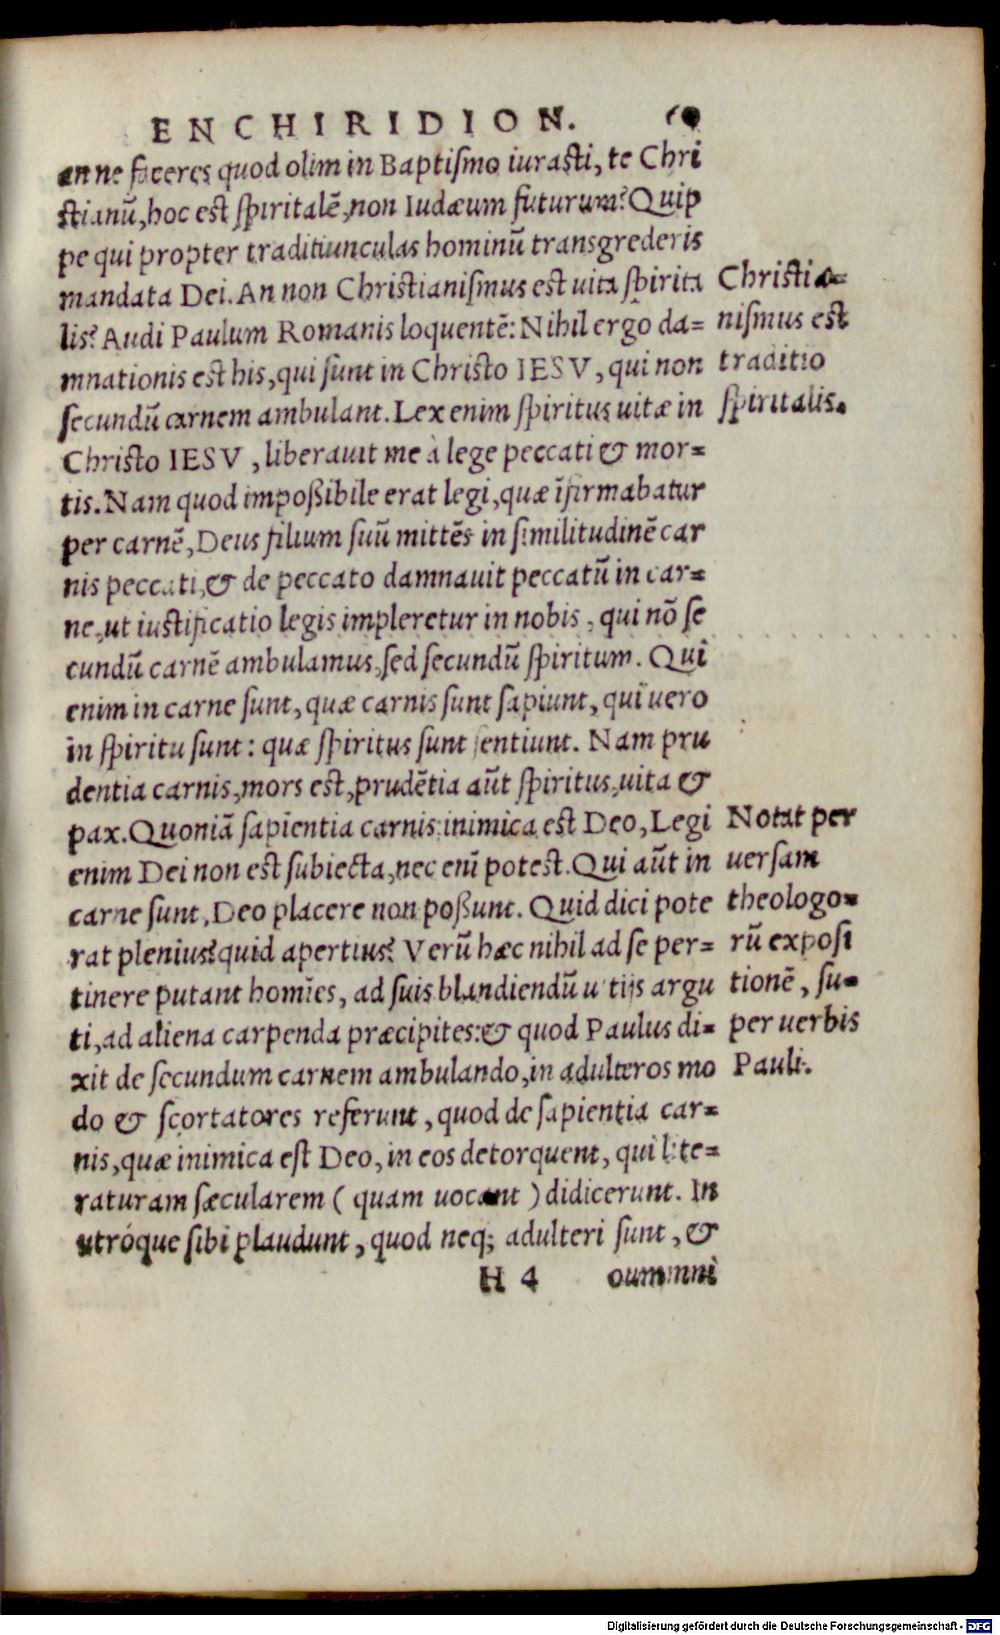 ENCHIRIDION. 60
an ne faceres quod olim in Baptiſmo iuraſti, te Chri
ſtianū, hoc eſt ſpiritalē, non Iudæum futurum? Quip
pe qui propter traditiunculas hominū transgrederis
mandata Dei. An non Chriſtianiſmus eſt uita ſpirita
lis? Audi Paulum Romanis loquentē: Nihil ergo da=
mnationis eſt his, qui ſunt in Chriſto IESV, qui non
ſecundū carnem ambulant. Lex enim ſpiritus uitæ in
Chriſto IESV, liberauit me à lege peccati & mor=
tis. Nam quod impoßibile erat legi, quæ īfirmabatur
per carnē, Deus filium ſuū mittēs in ſimilitudinē car
nis peccati, & de peccato damnauit peccatū in car=
ne, ut iuſtificatio legis impleretur in nobis, qui nō ſe
cundū carnē ambulamus, ſed ſecundū ſpiritum. Qui
enim in carne ſunt, quæ carnis ſunt ſapiunt, qui uero
in ſpiritu ſunt: quæ ſpiritus ſunt ſentiunt. Nam pru
dentia carnis, mors eſt, prudētia aūt ſpiritus, uita &
pax. Quoniā ſapientia carnis inimica eſt Deo, Legi
enim Dei non eſt ſubiecta, nec enī poteſt. Qui aūt in
carne ſunt, Deo placere non poßunt. Quid dici pote
rat plenius? quid apertius? Verū hæc nihil ad ſe per=
tinere putant homīes, ad ſuis blandiendū uitijs argu
ti, ad aliena carpenda præcipites: & quod Paulus di=
xit de ſecundum carnem ambulando, in adulteros mo
do & ſcortatores referunt, quod de ſapientia car=
nis, quæ inimica eſt Deo, in eos detorquent, qui lite=
raturam ſæcularem ( quam uocant ) didicerunt. In
utróque ſibi plaudunt, quod neq; adulteri ſunt, &
H 4 oummni
Chriſtia=
niſmus eſt
traditio
ſpiritalis.
Notat per
uerſam
theologo=
rū expoſi
tionē, ſu=
per uerbis
Pauli.
Digitalisierung gefördert durch die Deutsche Forschungsgemeinschaft - DFG